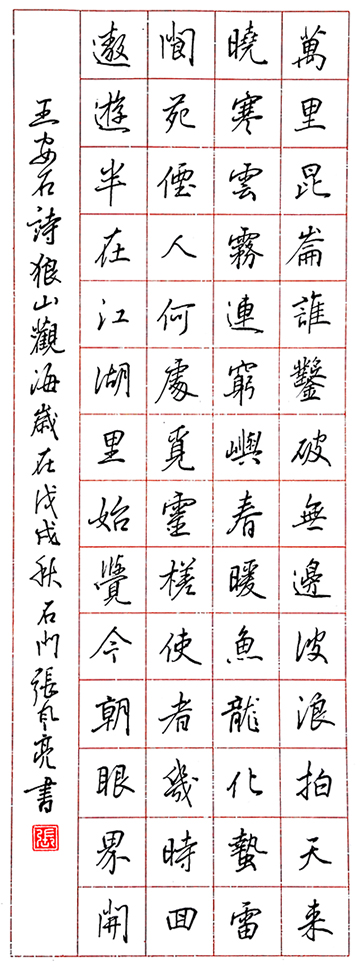 萬里昆崙誰鑿破無邊波浪拍天来
曉寒雲霧連窮嶼春暖魚龍化蟄雷
閬苑僊人何處覓靈槎使者幾時囬
遨遊半在江湖里始覺今朝眼界開
王安石詩狼山觀海歲在戊戌秋石門張亮書
張